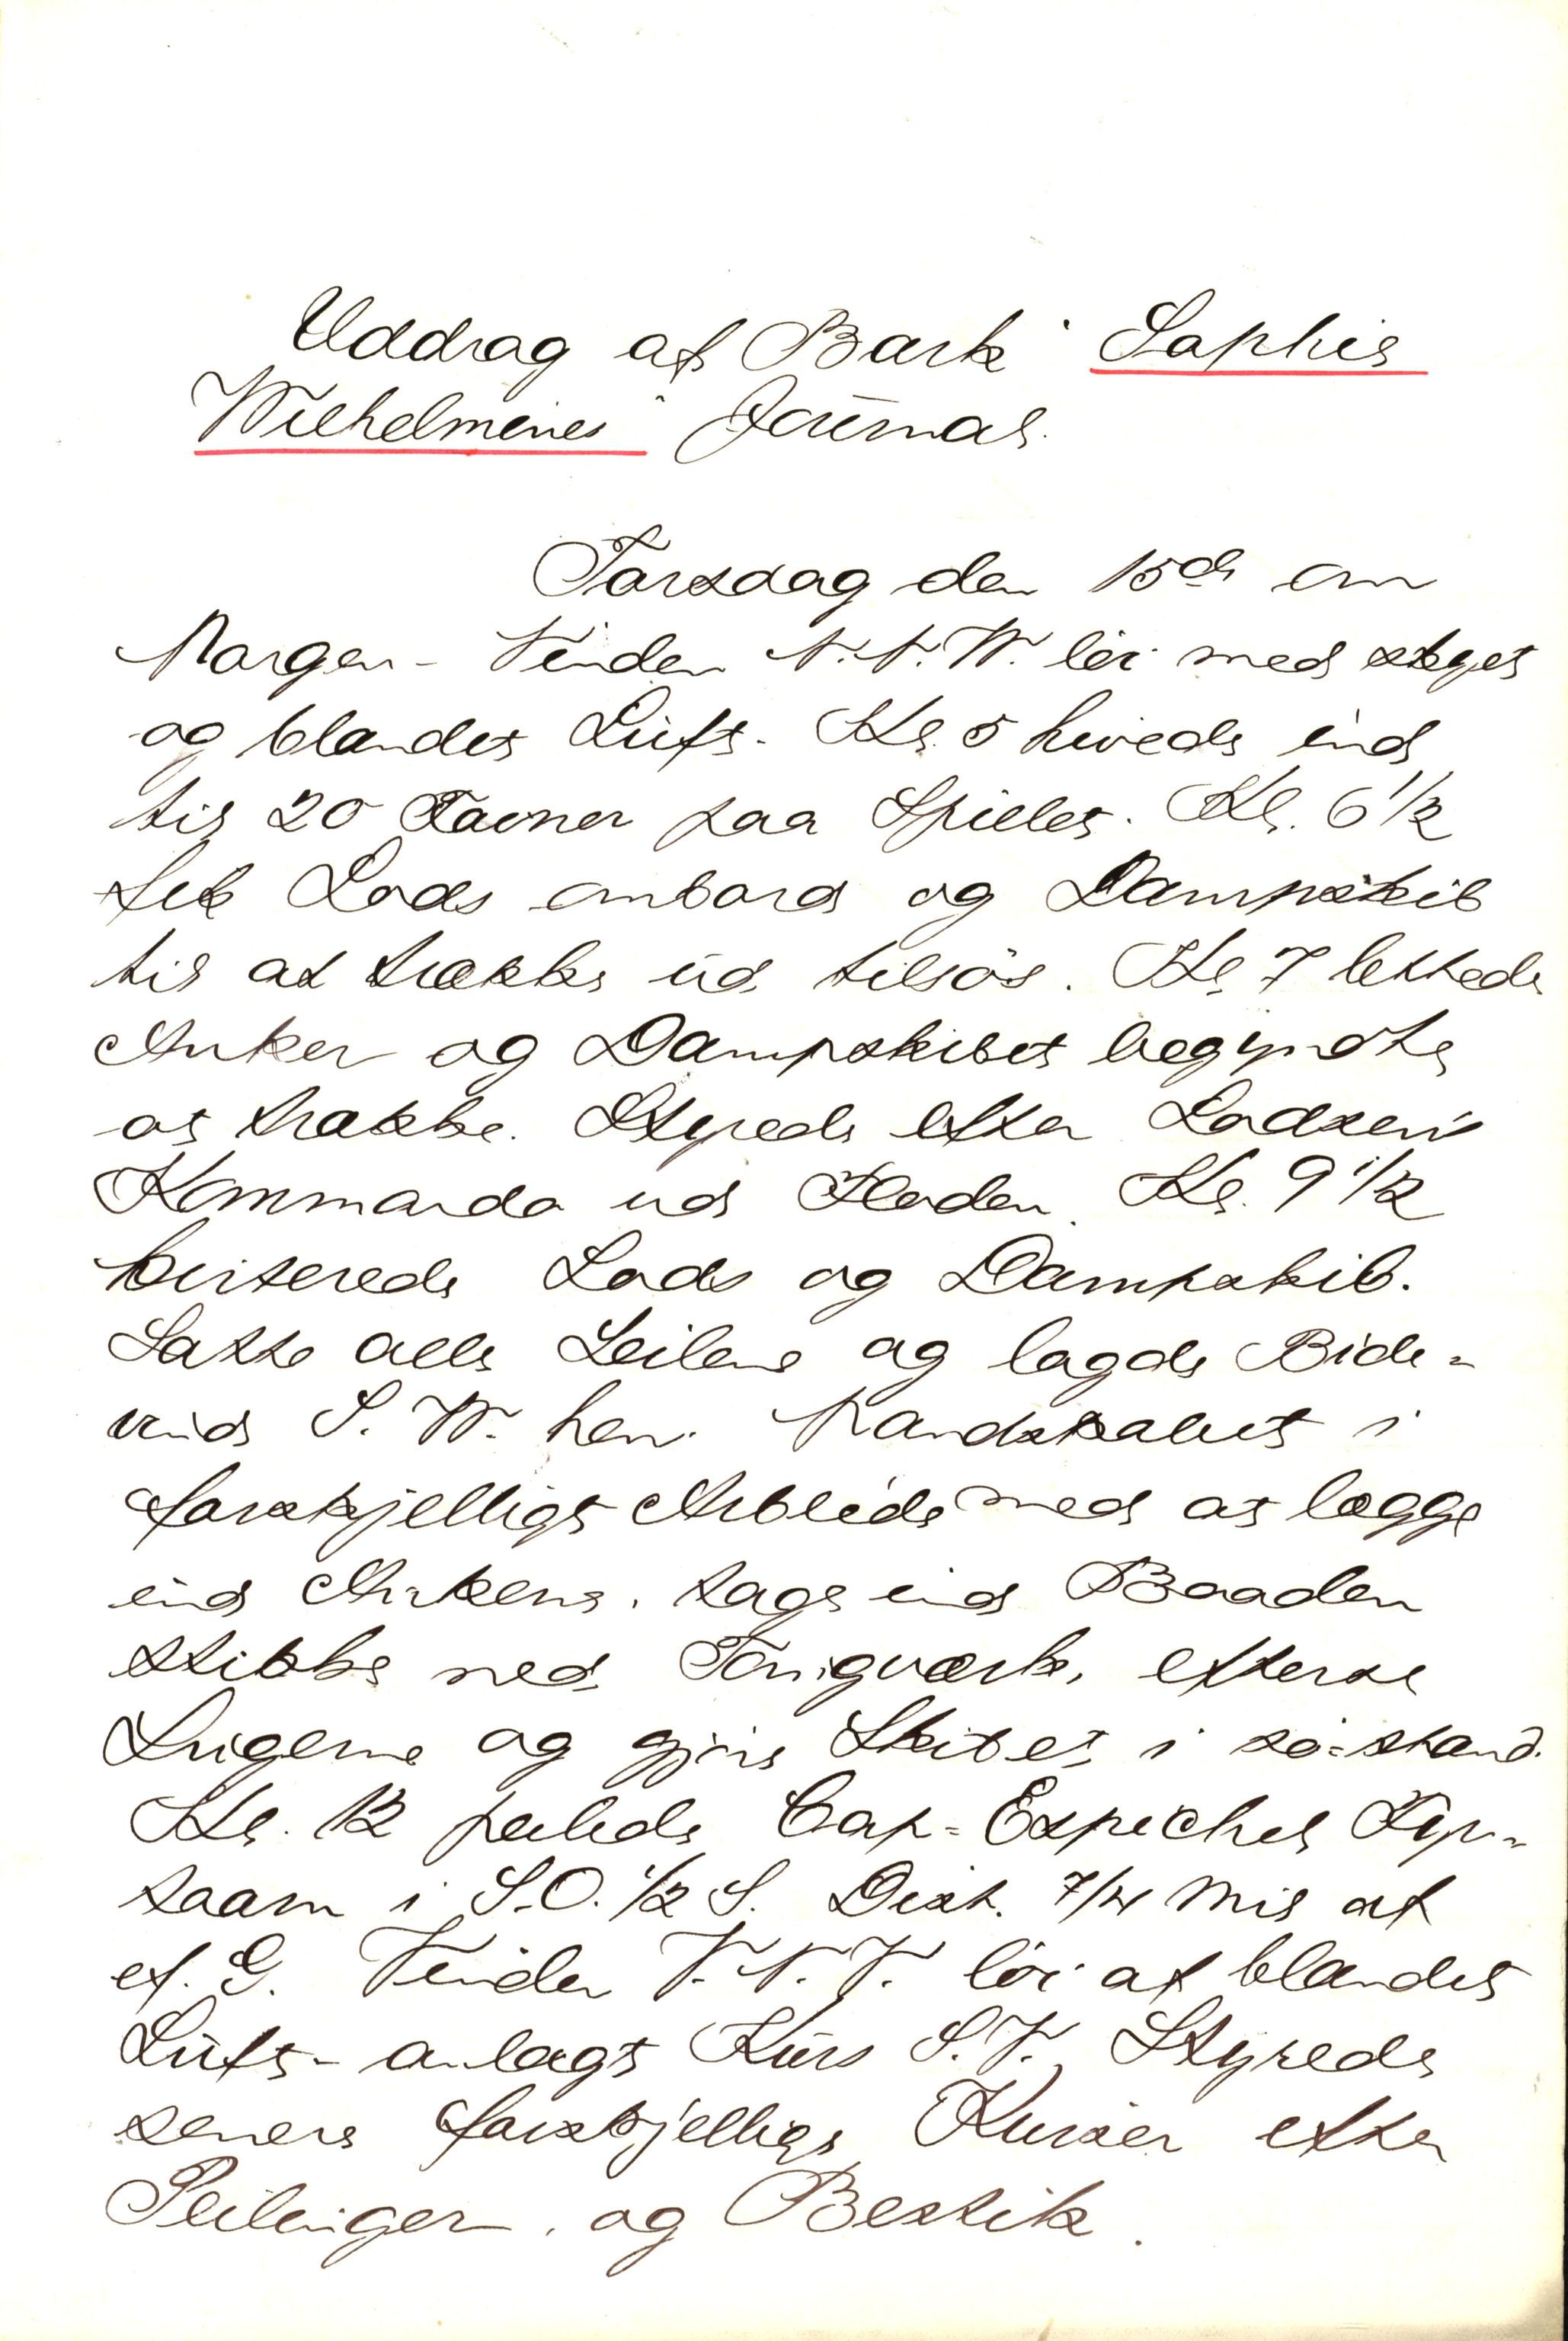 Uddrag af Bark "Sophie
Wilhelmines" Journal.
Torsdag den 15de om
Morgen - Vinden N.N.W. löi med skyet
og blandet Luft. Kl. 5 hivede ind
til 20 Favner paa Spillet. Kl. 6 1/2
fik Lods ombord og Dampskib
til at trække ud tilsøs. Kl. 7 lettede
Anker og Dampskibet begyndte
at trække. Styrede efter Lodsens
Kommando ud Floden. Kl. 9 1/2
kviterede Lods og Dampskib.
Satte alle Seilene og lagde Bide-
vind S.W. hen. Mandskabet i
forskjelligt Arbeide med at lægge
ind Ankerne, tage ind Baaden
stikke ned Tougværk, efterse
Lugerne og gjøre Skibet i sø-stand.
Kl. 12 peilede Cap-Espichel Fyr-
taarn i S.O. 1/2 S. Dist. 7/4 Mil af
et. G. Vinden V.N.V. löi af blandet
Luft - anlagt Kurs S.V. Styrede
senere forskjellige Kurser efter
Peilinger, og Bestik.